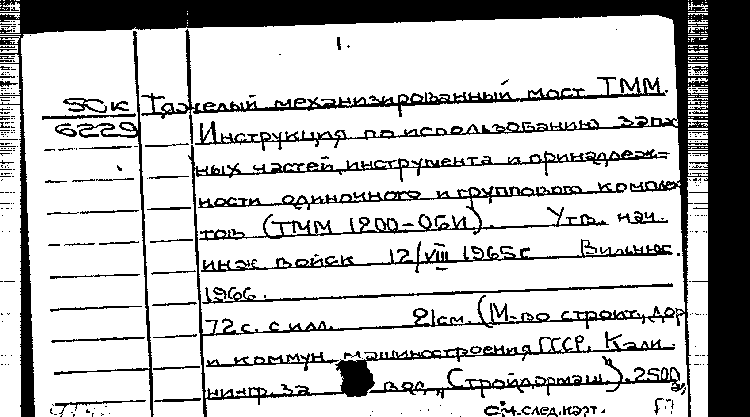 1.
50к Тяжелый механизированный мост ТММ.
6229 Инструкция по использованию запас
ных частей, инструмента и принадлеж-
ности одиночного и группового комплек
тов (ТММ 1200-ОБИ). Утв. нач.
инж войск 12/VIII 1965г Вильнюс.
1966.
72 с. с илл. 21см. (М-во строит., дор
и коммун. машиностроения СССР. Кали
нингр. за вод „Стройдормаш"). 2500э,
См. след. карт.